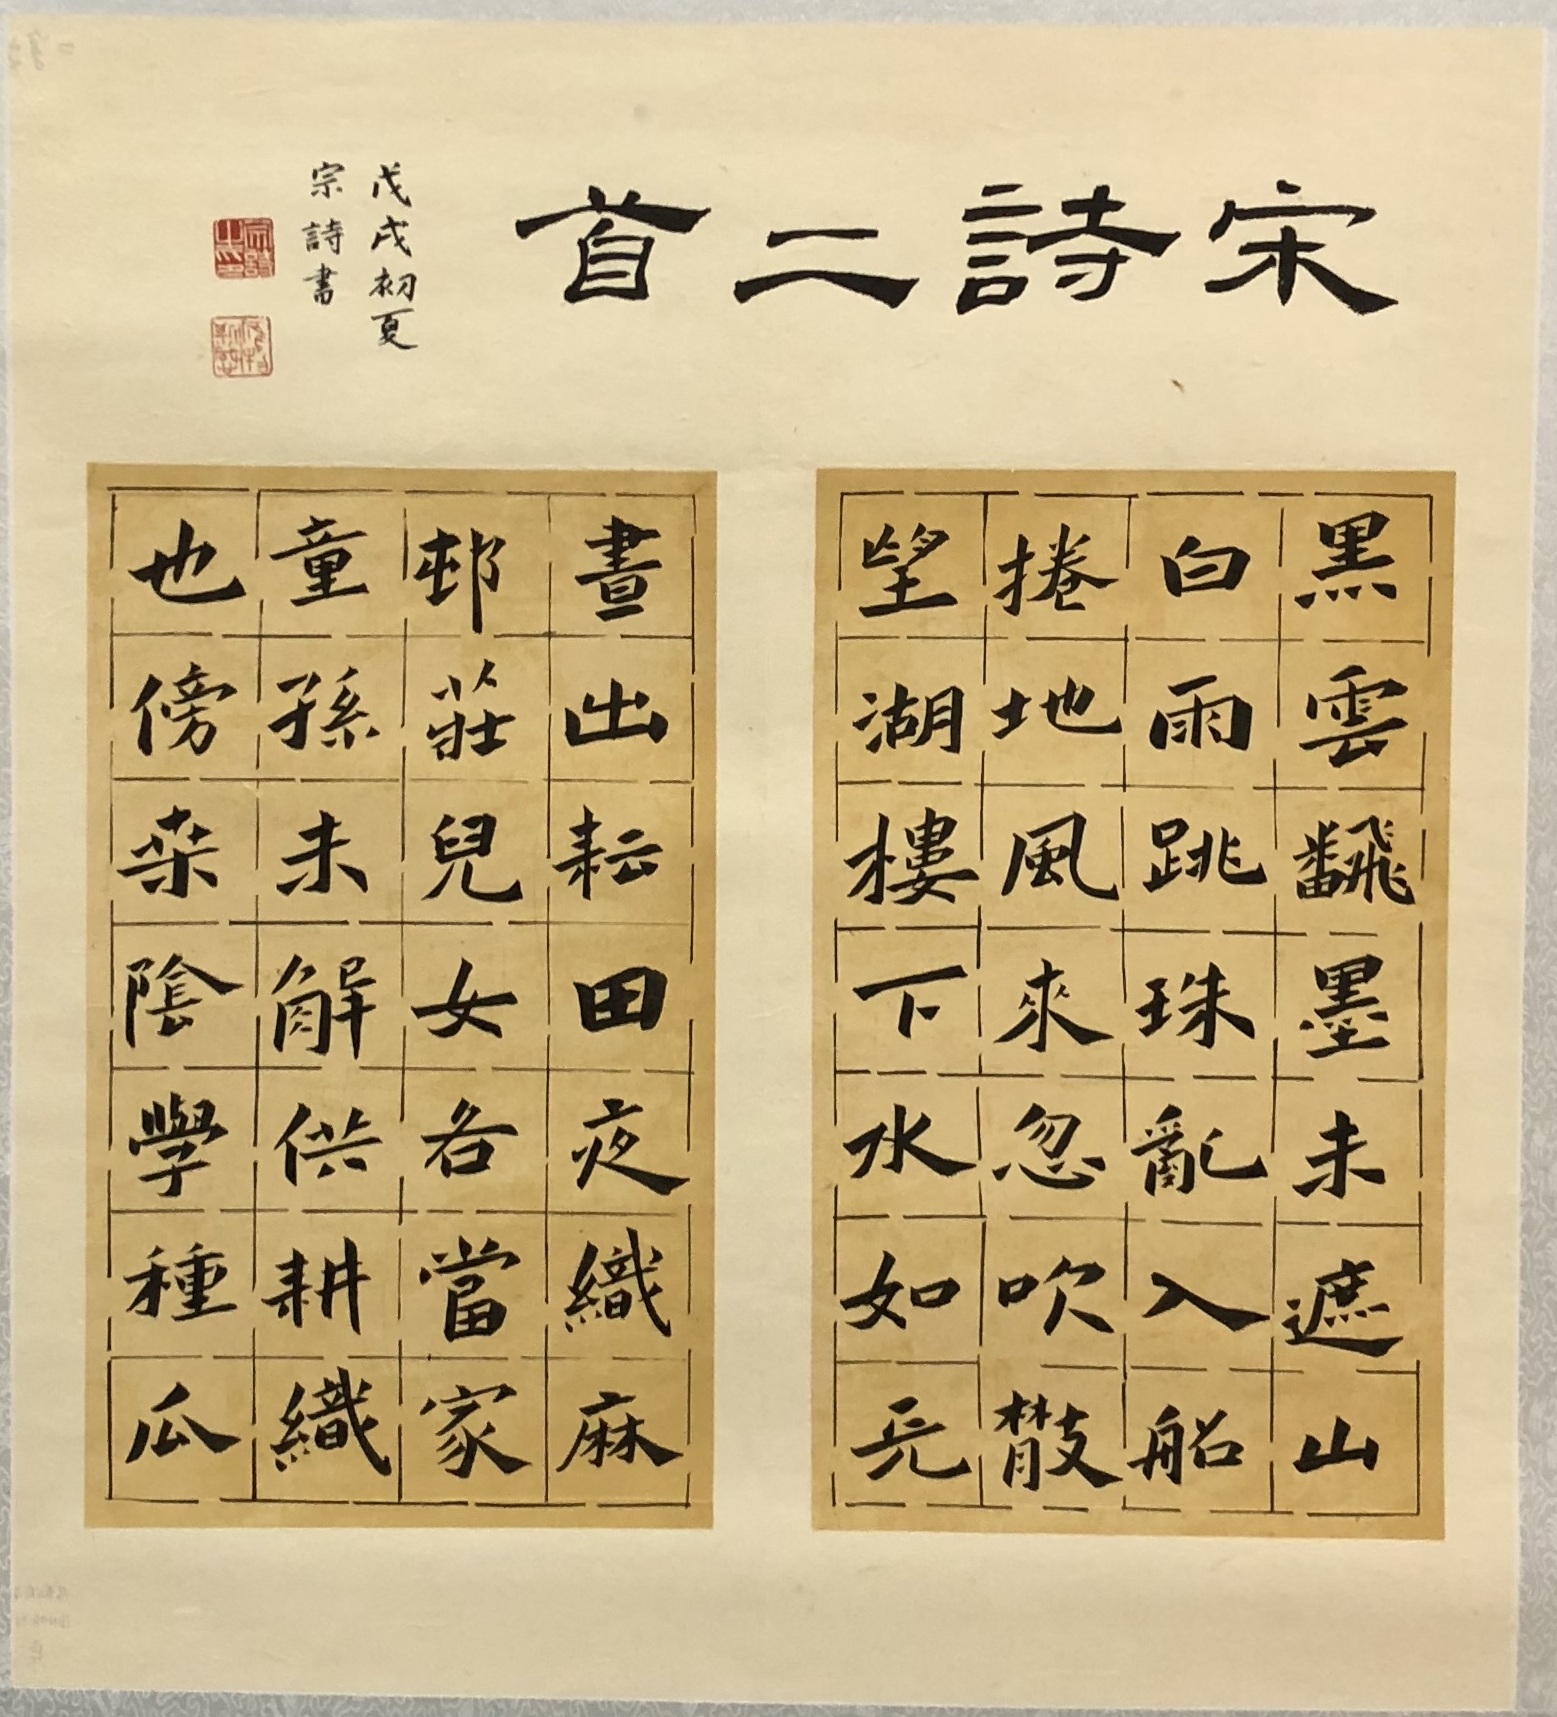 宋詩二首
黑雲飜墨未遮山
白雨跳珠亂入船
捲地風來忽吹散
望湖樓下水如天
晝出耘田夜織麻
邨莊兒女各當家
童孫未解供耕織
也傍桒陰學種瓜
戊戌初夏
宗詩書